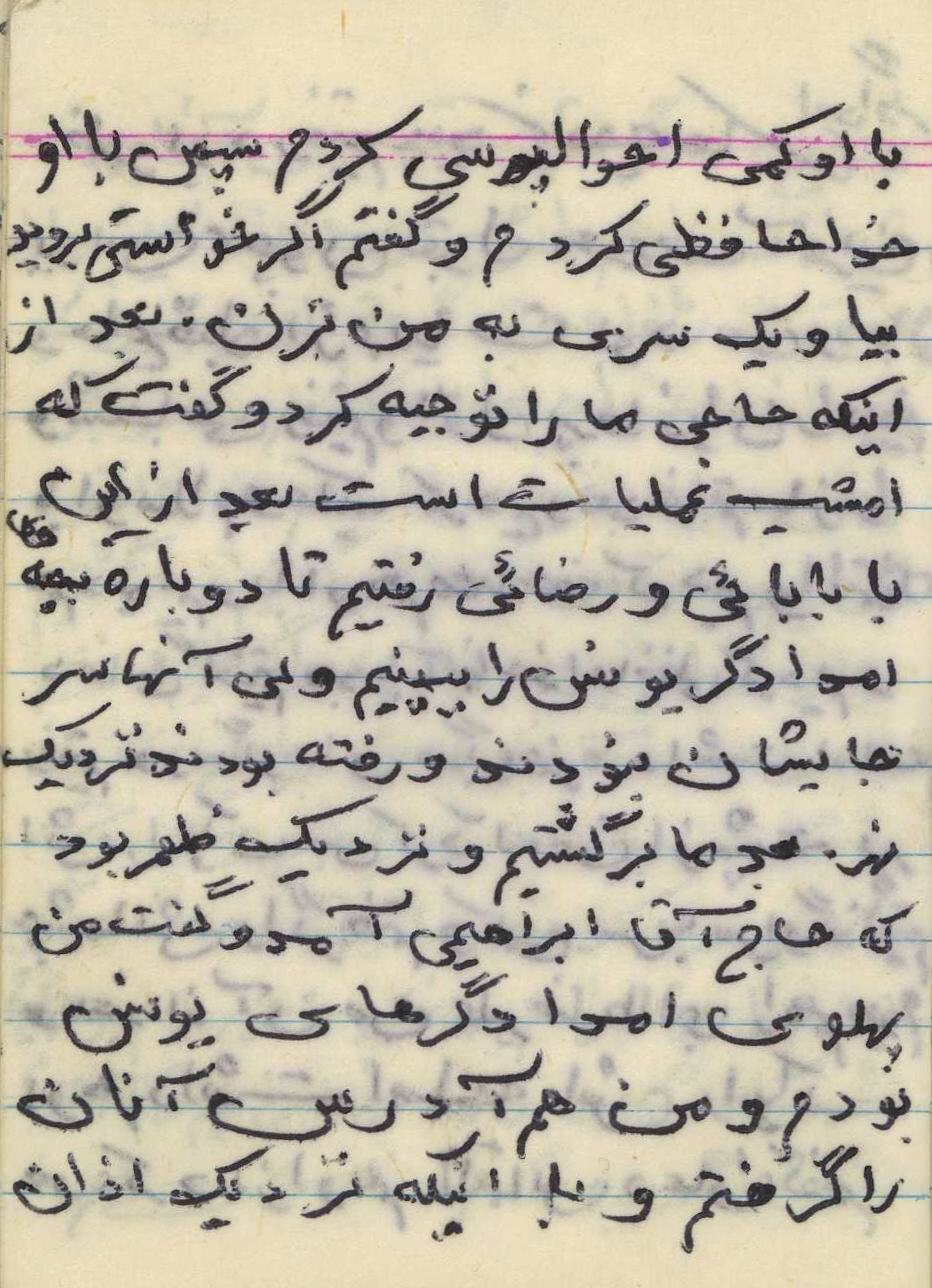 با او کمی احوالپرسی کردم سپس با او
خداحافظی کردم و گفتم اگر خواستی بروید
بیا و یک سری به من بزن. بعد از
اینکه حاجی ما را توجیه کرد و گفت که
امشب عملیات است بعد از این
با بابائی و رضائی رفتیم تا دوباره بچه های
امدادگر یونس را ببینیم ولی آنها سر
جایشان نبودند و رفته بودند نزدیک
نهر. بعد ما برگشتیم و نزدیک ظهر بود
که حاج آقا ابراهیمی آمد و گفت من
پهلوی امدادگرهای یونس
بودم و من هم آدرس آنان
را گرفتم و با اینکه نزدیک اذان